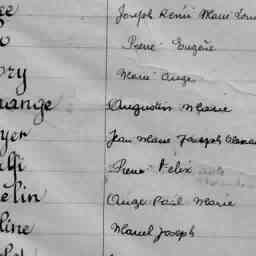 ee Joseph Rémi Marie Lou
Pierre Eugène
ory Marie Ange
hange Augustin Marie
yer Jean Marie Joseph Alexan
lli Pierre Felix
elin Ange Paul Marie
line Marcel Joseph